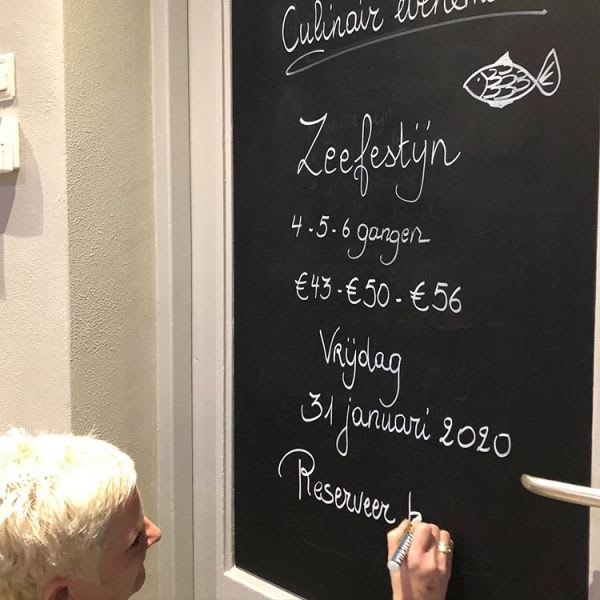 Culinair
Zeefestijn
4-5-6 gangen
€43-€50-€56
Vrijdag
31 januari 2020
Reserveer